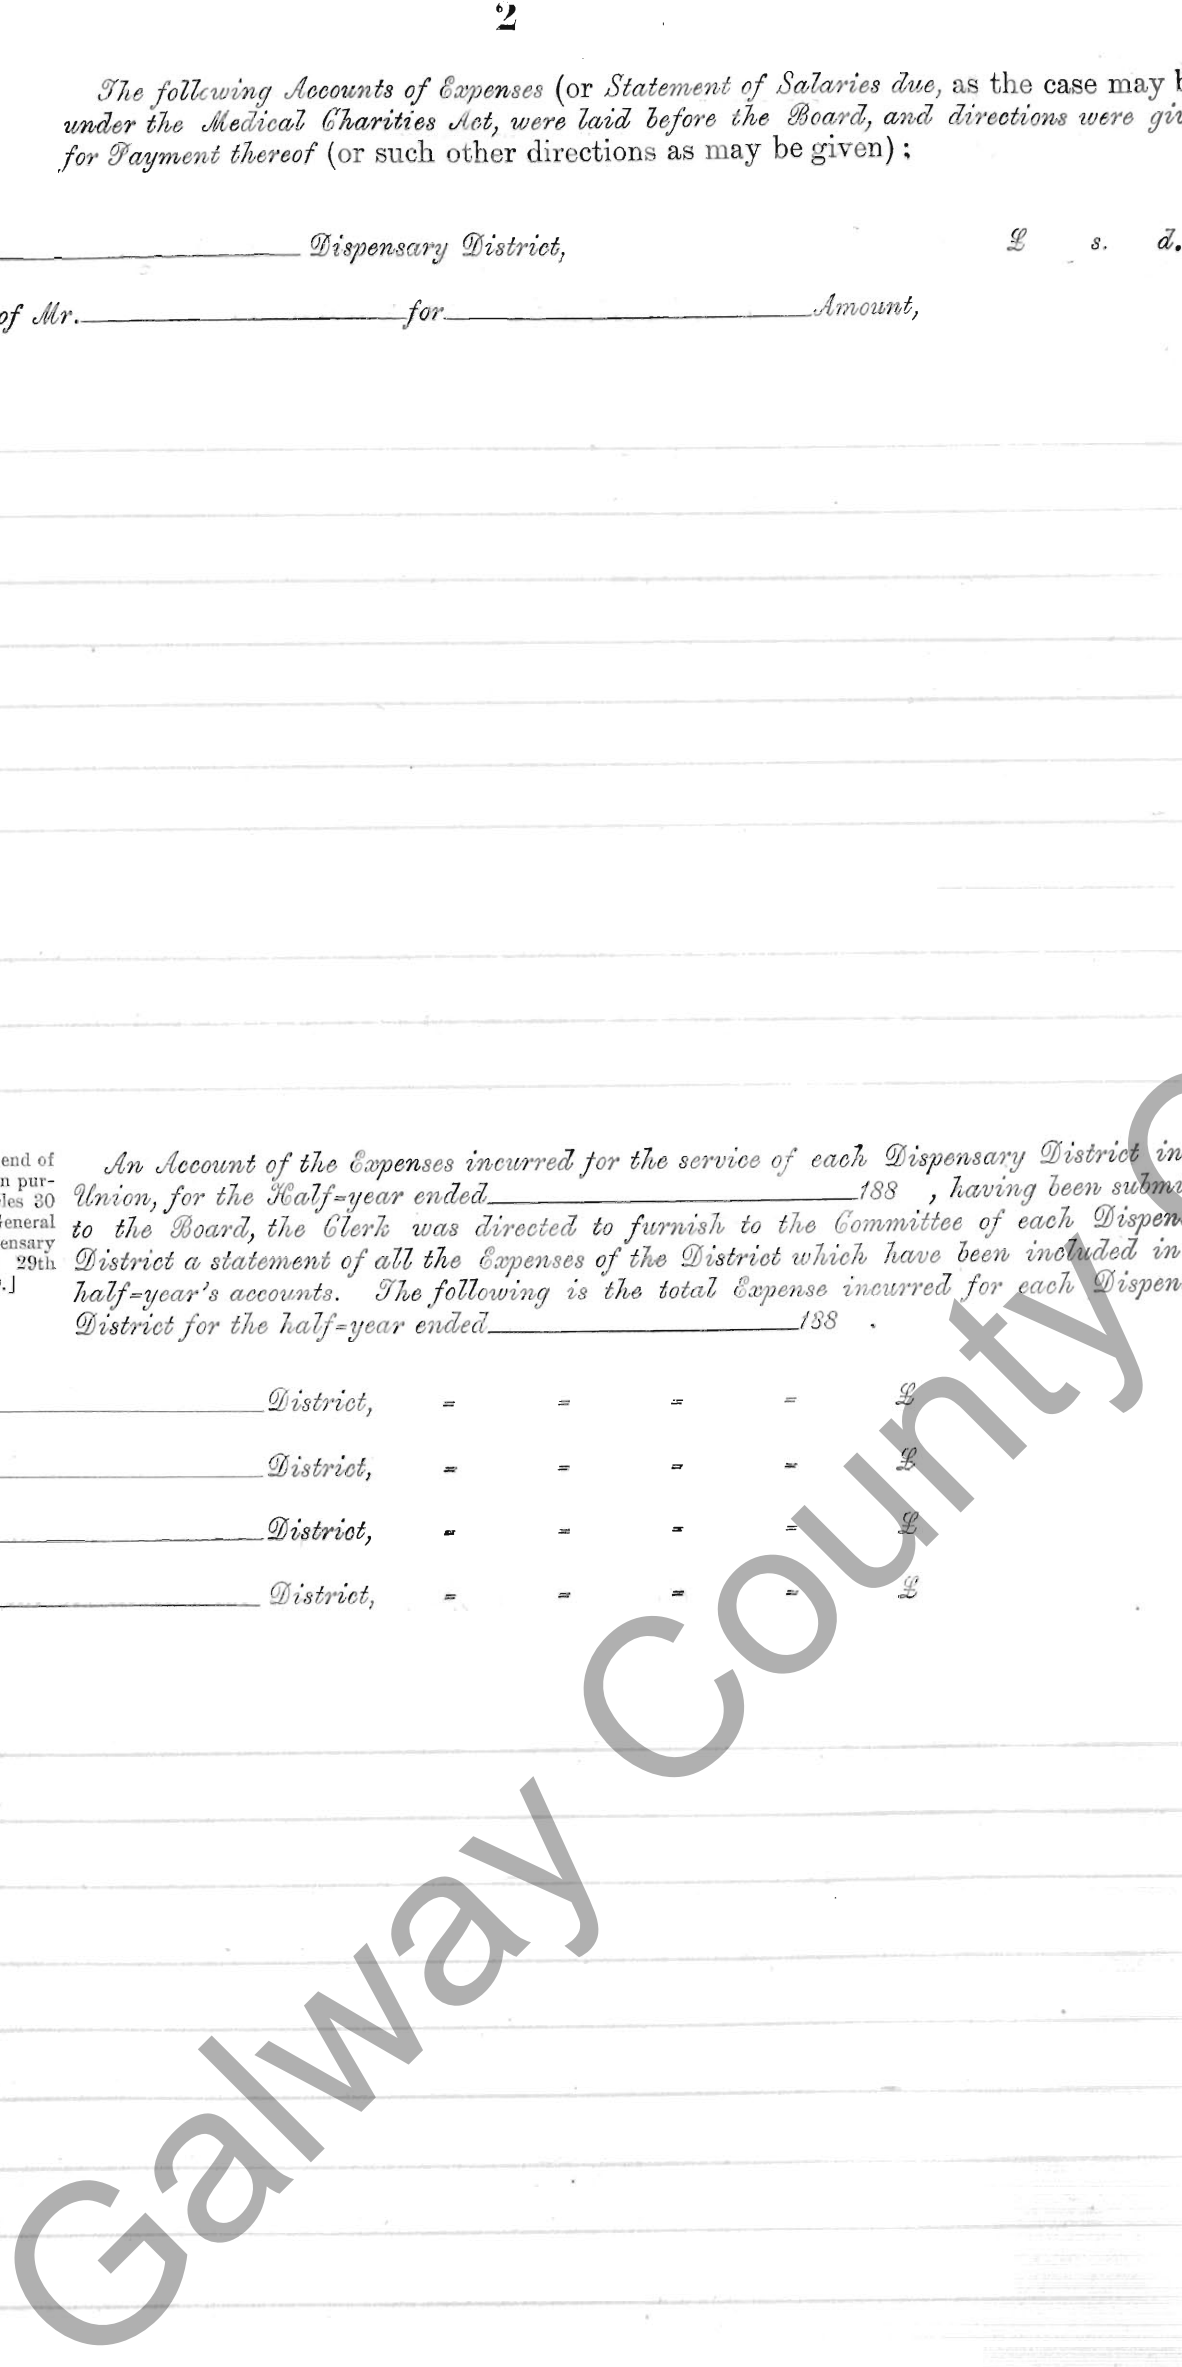 2
The following Accounts of Expenses (or Statement of Salaries due, as the case may b
under the Medical Charities Act, were laid before the Board, and directions were giv
for Payment thereof (or such other directions as may be given) ;
Dispensary District, £ s. d.
of Mr. for Amount,
end of
n pur-
les 30
eneral
ensary
29th
.]
An Account of the Expenses incurred for the service of each Dispensary District in
Union, for the Half=year ended 188 , having been submi
to the Board, the Clerk was directed to furnish to the Committee of each Dispen
District a statement of all the Expenses of the District which have been included in
half=year's accounts. The following is the total Expense incurred for each Dispen
District for the half=year ended 188 .
District, = = = = £
District, = = = = £
District, = = = = £
District, = = = = £
Galway County C